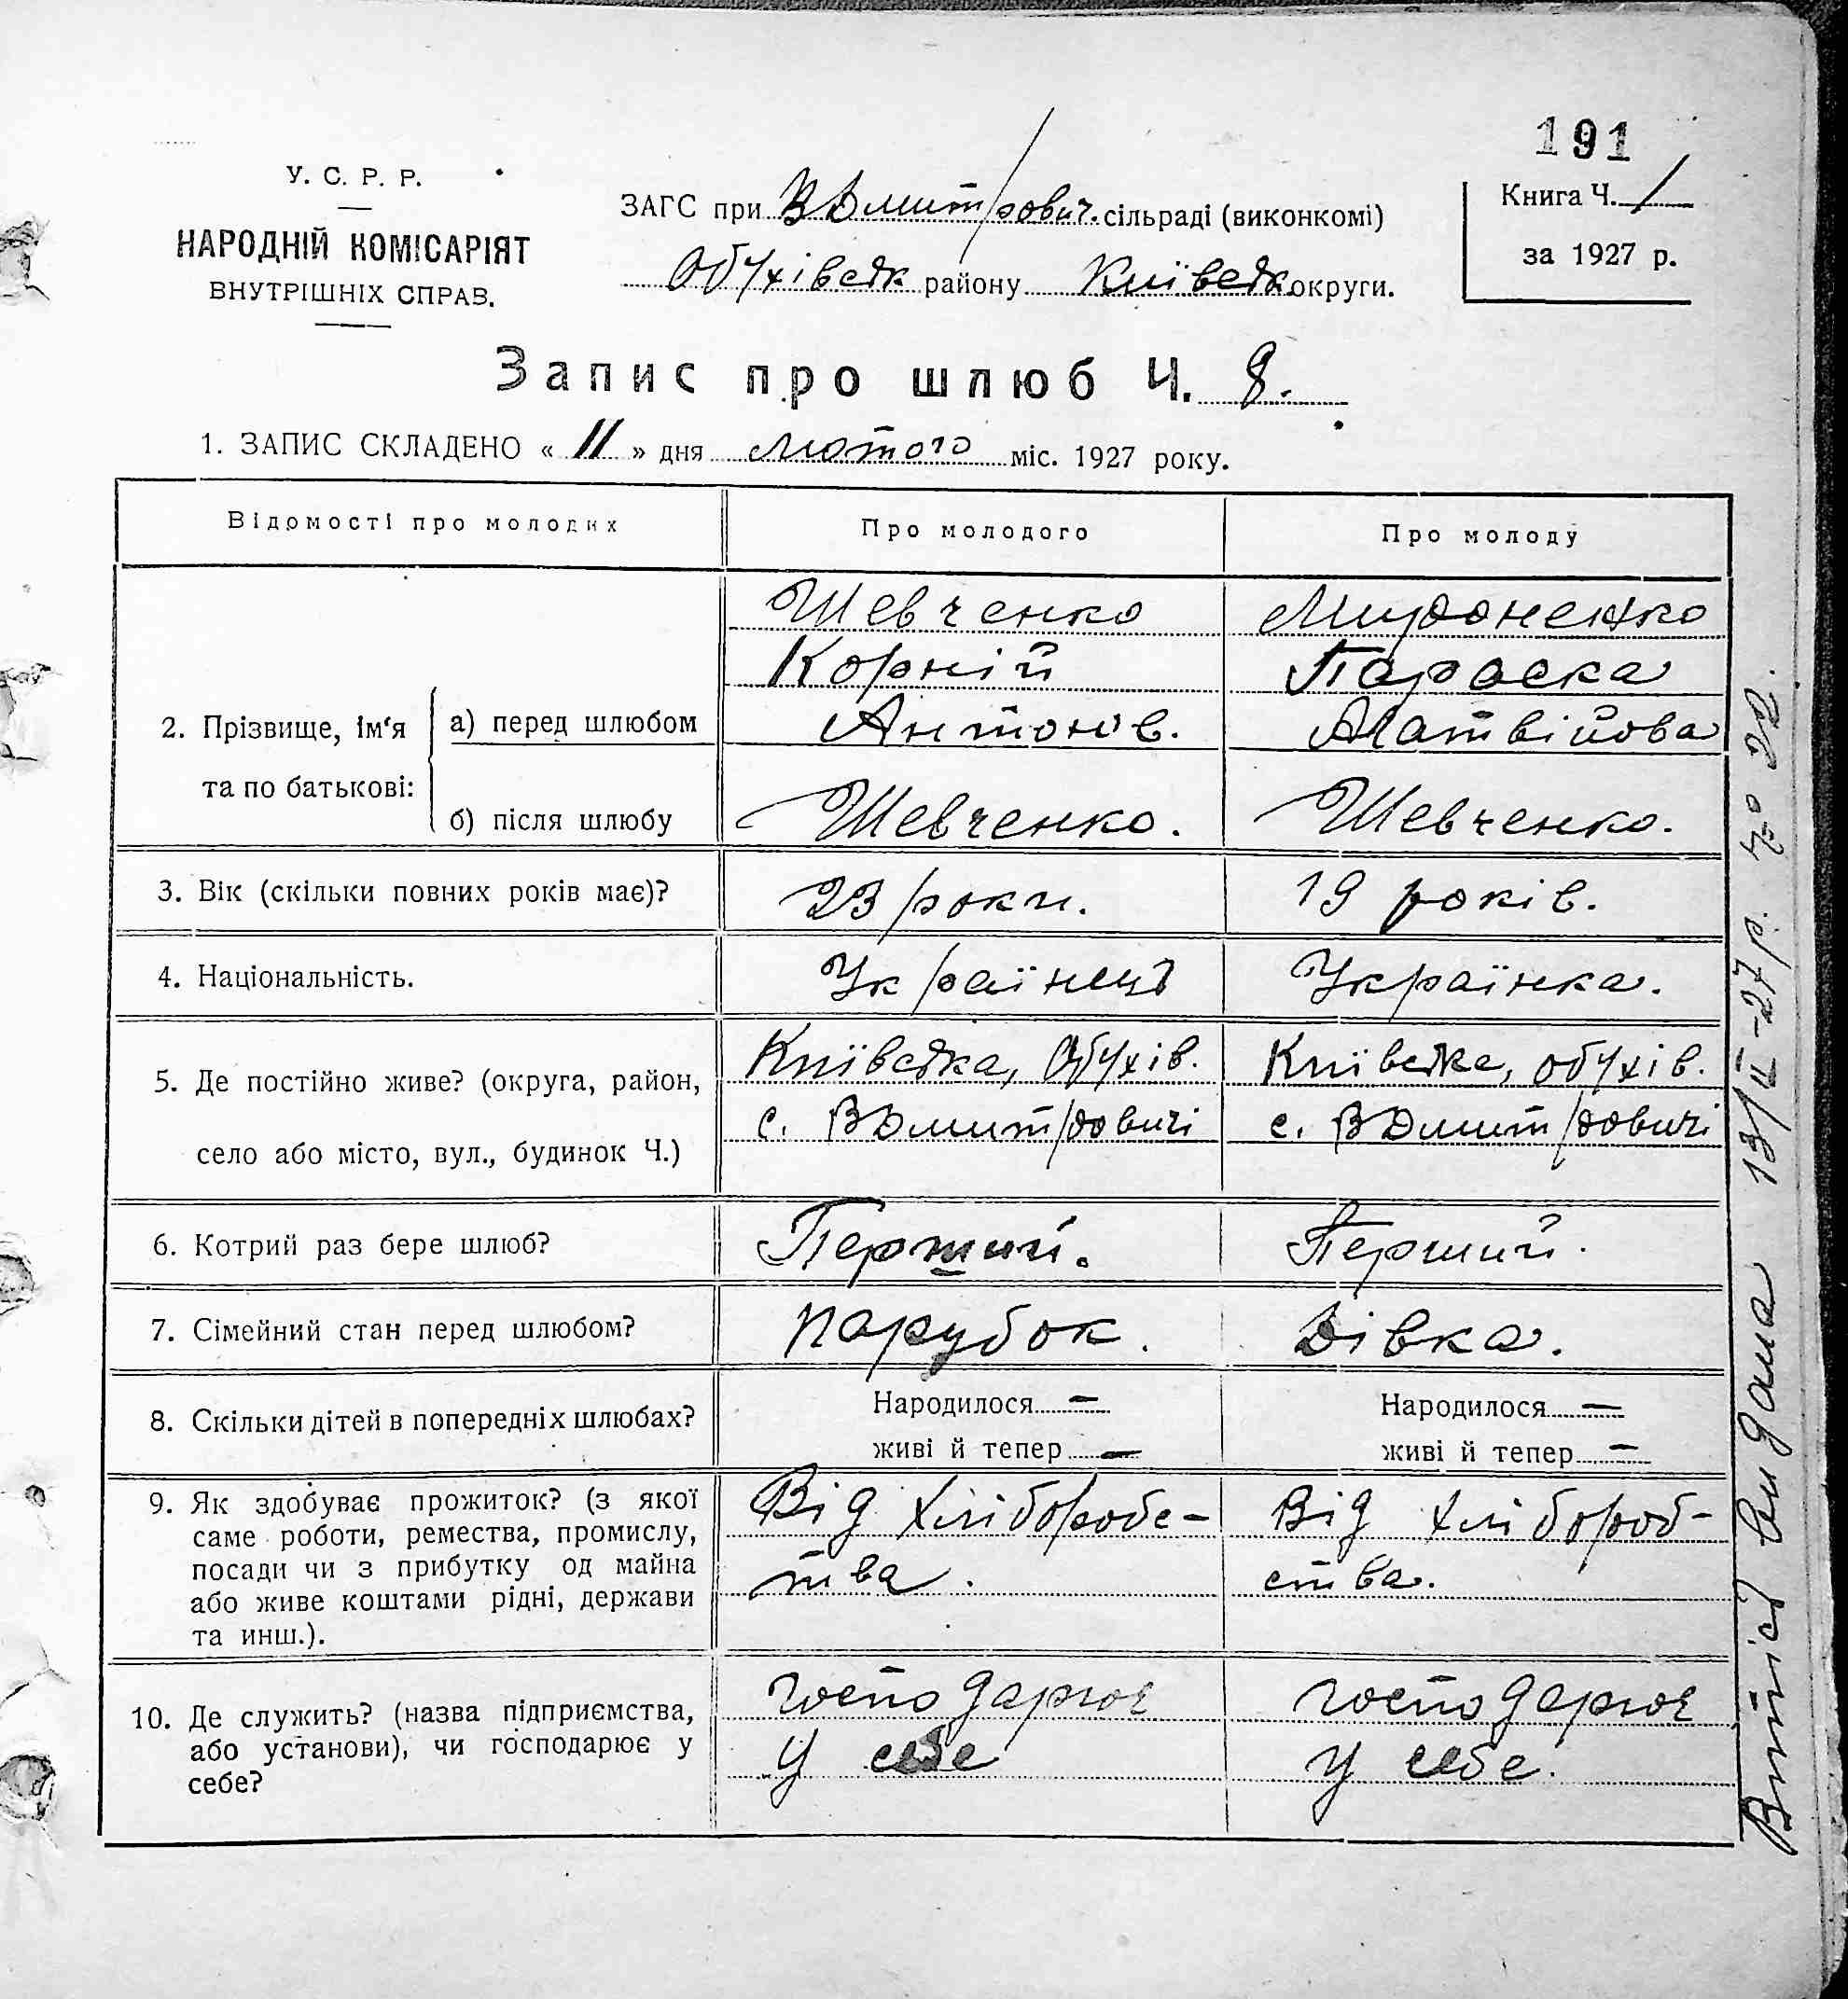 191
У. С. Р. Р.
НАРОДНІЙ КОМІСАРІЯТ
ВНУТРІШНІХ СПРАВ.
ЗАГС при ВДмитрович. сільраді (виконкомі)
Обухівськ району Київськ округи.
Книга Ч. 1
за 1927 р.
Запис про шлюб Ч. 8.
1. ЗАПИС СКЛАДЕНО « 11 » дня лютого міс. 1927 року.
Відомості про молодих Про молодого Про молоду
2. Прізвище, ім'я та по батькові:
а) перед шлюбом
Шевченко
Корній
Антонів.
Мироненко
Параска
Матвійова
б) після шлюбу
Шевченко.
Шевченко.
3. Вік (скільки повних років має)?
23 роки.
19 років.
4. Національність.
Українець
Українка.
5. Де постійно живе? (округа, район,
село або місто, вул., будинок Ч.)
Київська, Обухів.
с. ВДмитровичі
Київська, обухів.
с. ВДмитровичі
6. Котрий раз бере шлюб?
Перший.
Перший.
7. Сімейний стан перед шлюбом?
Парубок.
Дівка.
8. Скільки дітей в попередніх шлюбах?
Народилося —
живі й тепер —
Народилося —
живі й тепер —
9. Як здобуває прожиток? (з якої
саме роботи, ремества, промислу,
посади чи з прибутку од майна
або живе коштами рідні, держави
та инш.).
Від хліборобс-
тва.
Від хлібороб-
ства.
10. Де служить? (назва підприємства,
або установи), чи господарює у
себе?
господарює
у себе
господарює
у себе.
Витпіс видана 13/II-27 р. Ч° 22.